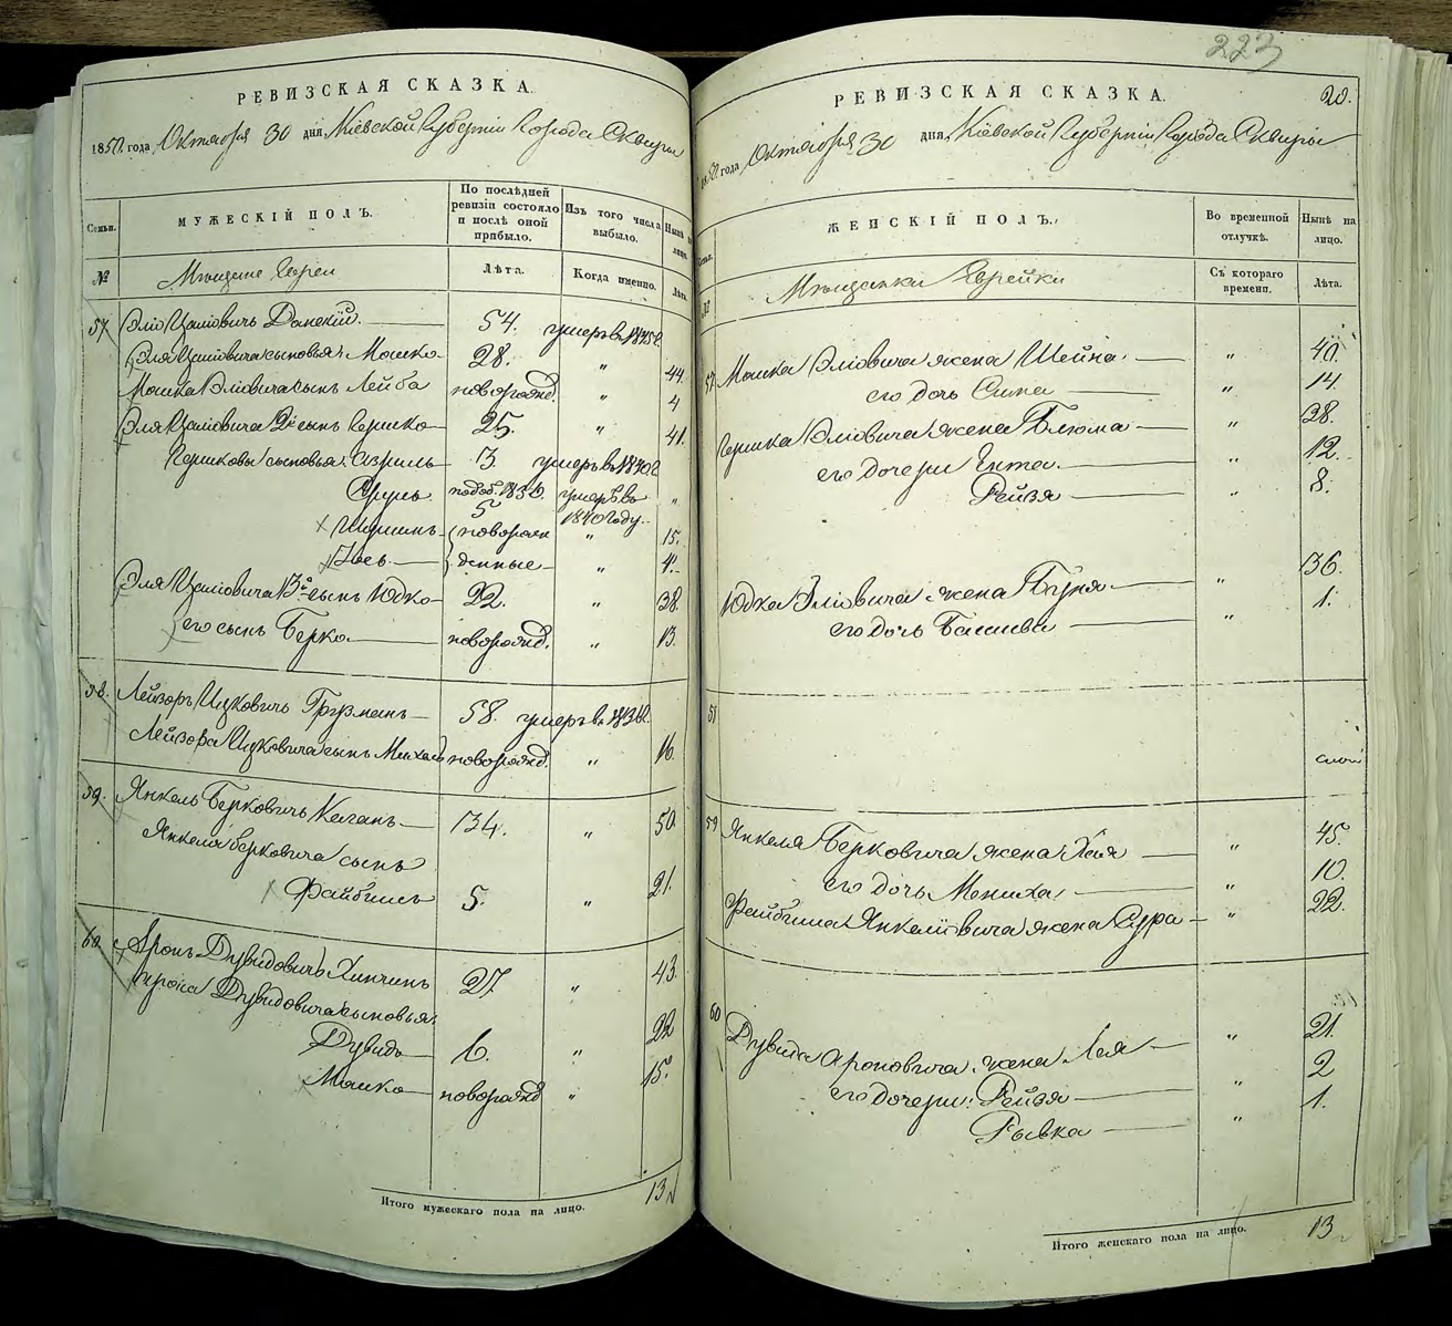 РЕВИЗСКАЯ СКАЗКА.
1850. года Октября 30 дня, Кіевской Губерніи Города Сквиры
Семьи.
МУЖЕСКІЙ ПОЛЪ.
По послѣдней ревизіи состояло и послѣ оной прибыло.
Изъ того числа выбыло.
Нынѣ на лицо.
№
Мѣщане Евреи
Лѣта.
Когда именно.
Лѣта.
57 Эліо Цаліовичь 54. умеръ въ 1845 г.
Эля Цаліовича сыновья: Мошко 28. " 44.
Мошка Эліовича сынъ Лейба новорожд. " 4
Эля Цаліовича 2й сынъ Гершко 25. " 41.
Гершковы сыновья: Азриль 13. умеръ въ 1840 г.
Сруль 1836. умеръ въ "
5 1840 году.
Шимонъ новорож " 15.
Іосъ денные " 4.
Эля Цаліовича 3й сынъ Юдко 22. " 38.
его сынъ Берко новорожд. " 13.
58. Лейзоръ Ицковичь Грузманъ 58. умеръ въ 1836 г.
Лейзора Ицковича сынъ Михель новорожд. " 16.
59. Янкель Берковичь Каганъ 34. " 50.
Янкеля Берковича сынъ
Файбишъ 5. " 21.
60. Аронъ Дувидовичь Хинчинъ 27 " 43.
Арона Дувидовича сыновья:
Дувидъ 6. " 22
Мошко новорожд " 15.
Итого мужескаго пола на лицо. 13
223
РЕВИЗСКАЯ СКАЗКА. 20.
1850. года Октября 30 дня, Кіевской Губерніи Города Сквиры
Семьи.
ЖЕНСКІЙ ПОЛЪ.
Во временной отлучкѣ.
Нынѣ на лицо.
№
Мѣщанки Еврейки
Съ котораго времени.
Лѣта.
57 Мошка Эліовича жена Шейна " 40.
его дочь Сима " 14.
Гершка Эліовича жена Блюма " 38.
его дочери Ента " 12.
Рейзя " 8.
Юдка Эліовича жена Буня " 36.
его дочь Басшева " 1.
58
59 Янкеля Берковича жена Хая " 45.
его дочь Мениха " 10.
Файбиша Янкеліовича жена Сура " 22.
60 Дувида Ароновича жена Лея " 21.
его дочери: Рейзя " 2
Рывка " 1.
Итого женскаго пола на лицо. 13